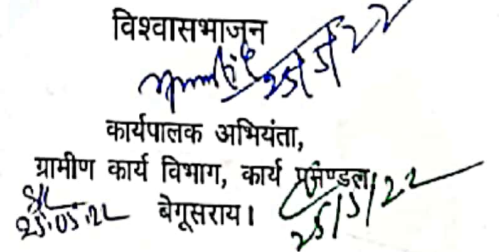 विश्वासभाजन
25/5/22
कार्यपालक अभियंता,
ग्रामीण कार्य विभाग, कार्य प्रमण्डल
बेगूसराय।
25.05.22
25/5/22